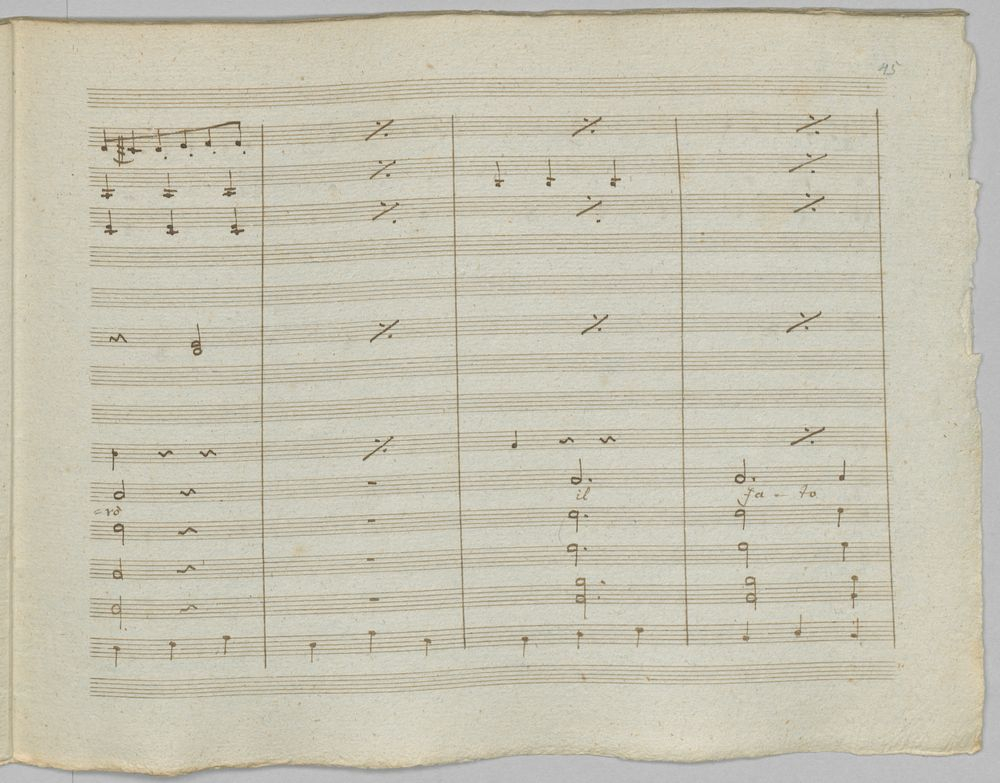 45
il fa - to
= rò